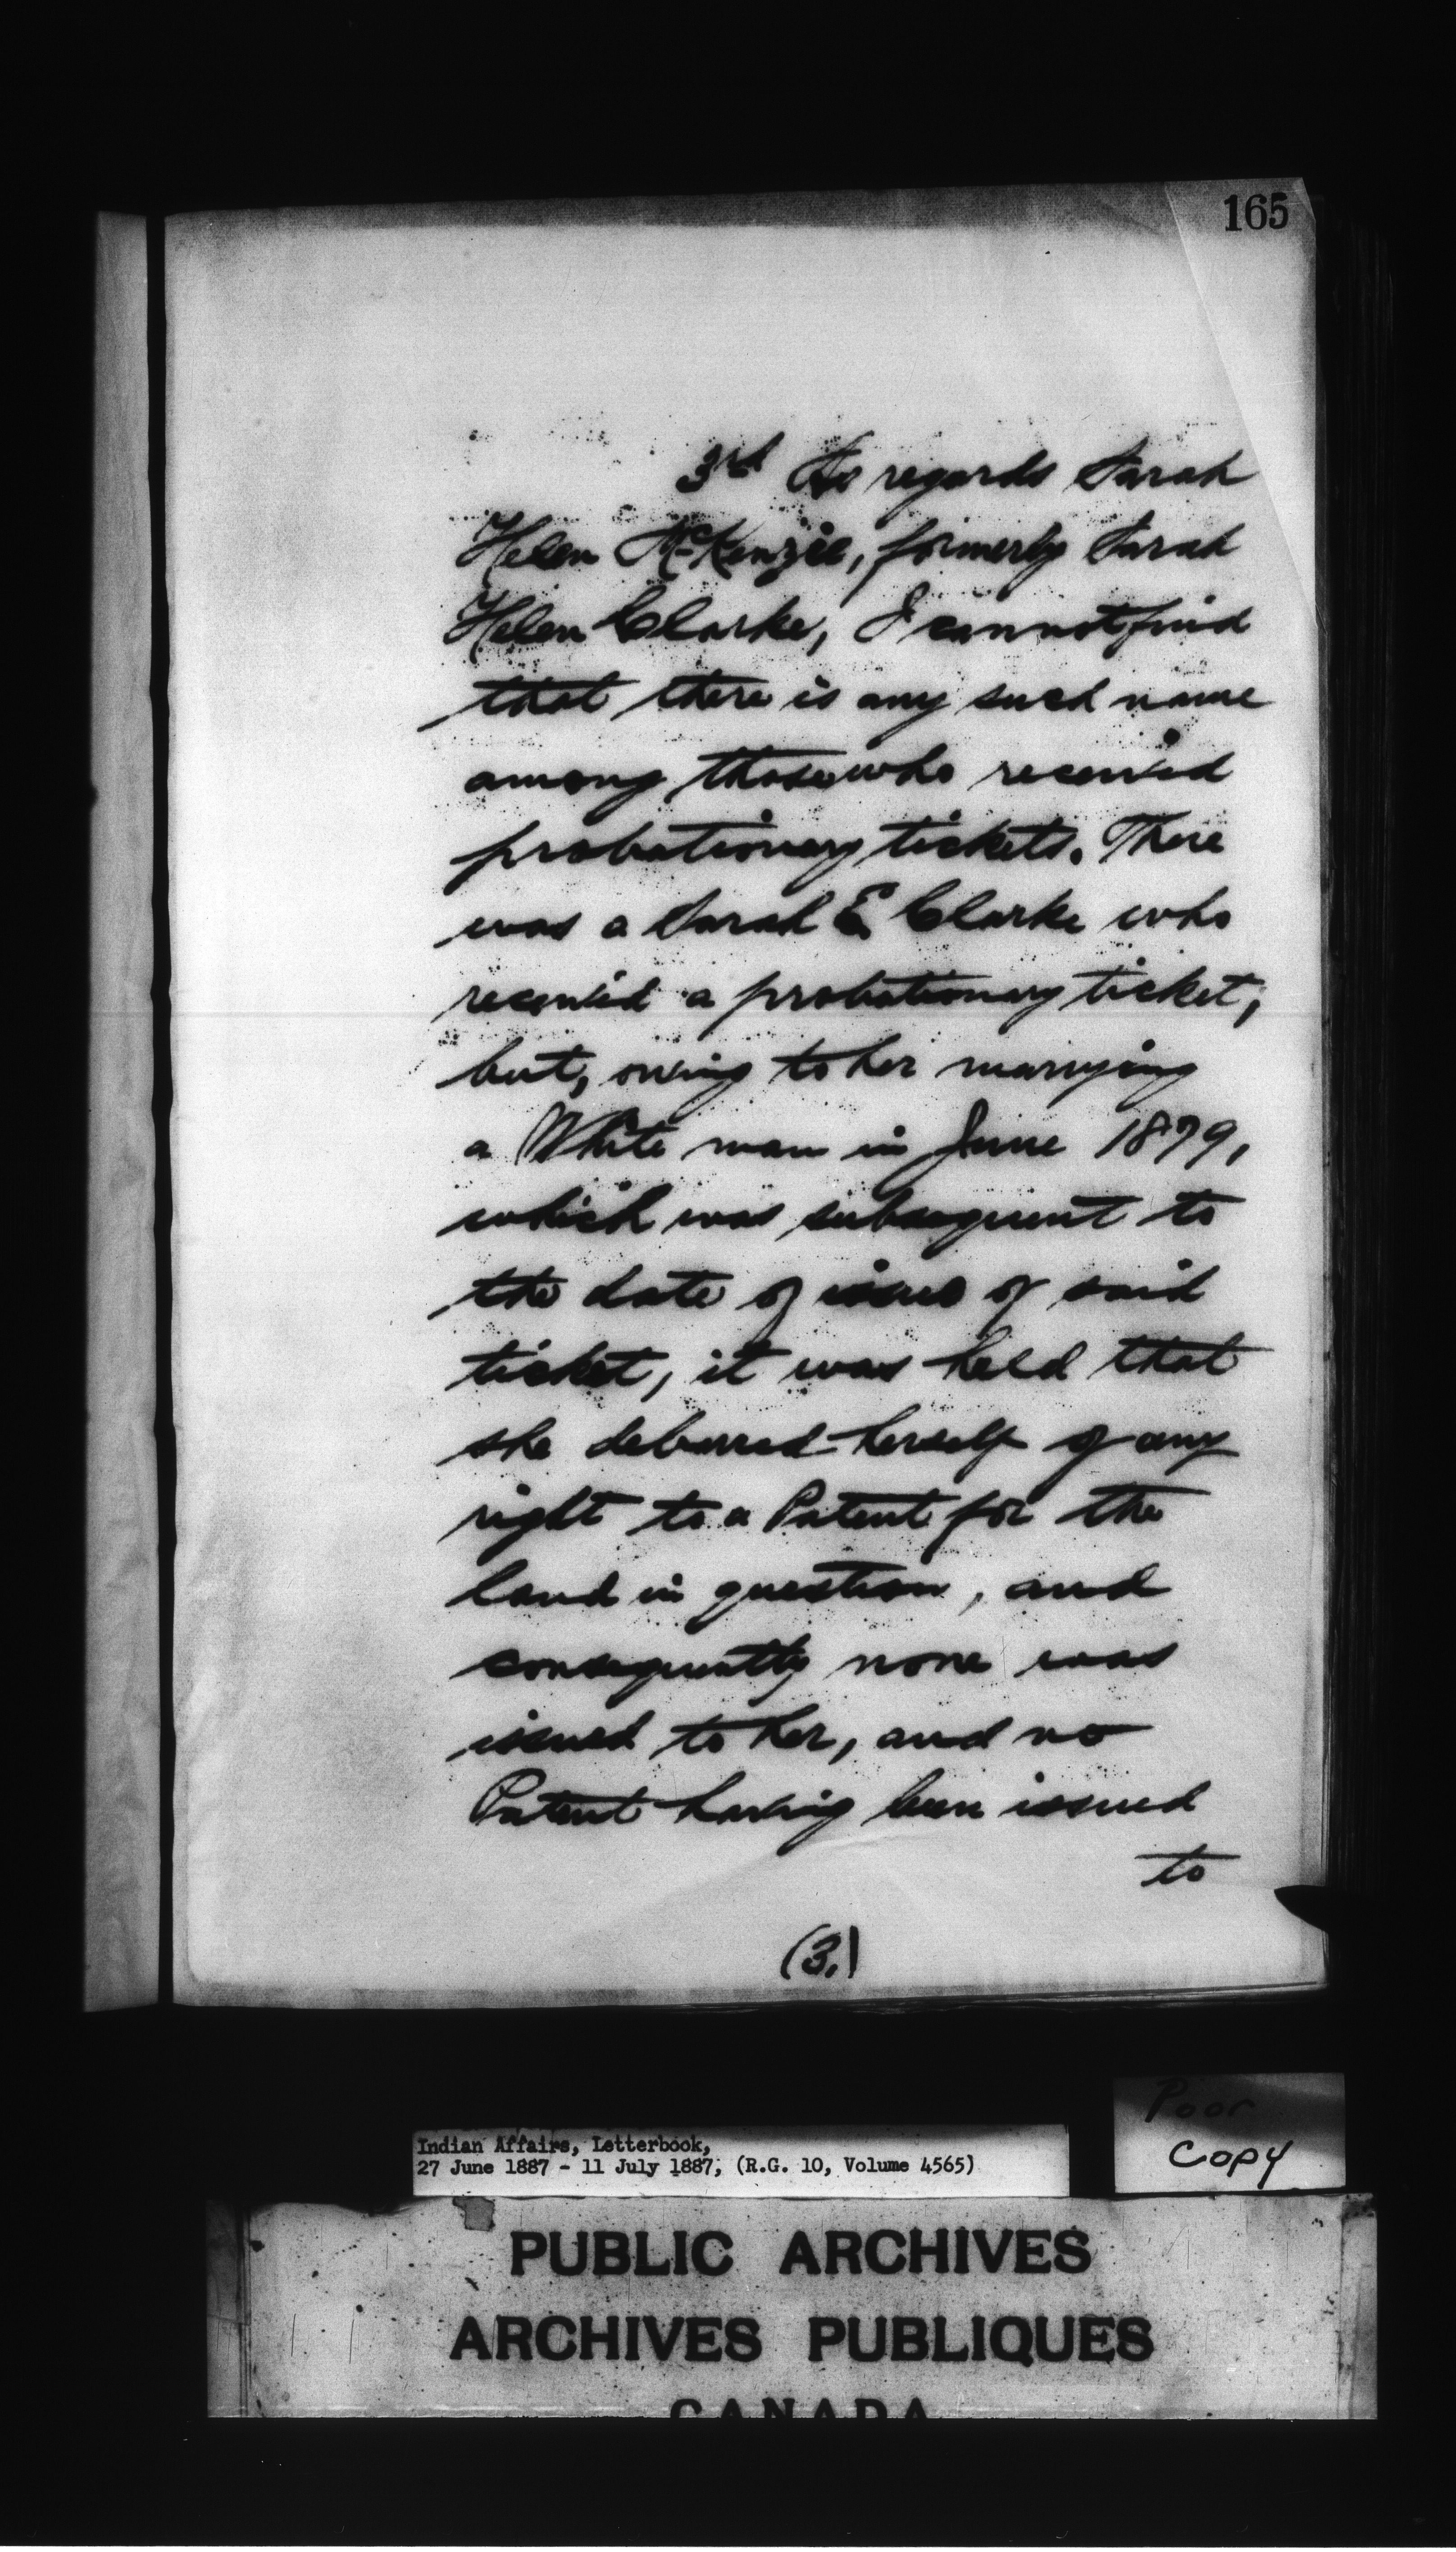 165
3rd As regards Sarah
Helen McKenzie, formerly Sarah
Helen Clarke, I cannot find
that there is any such name
among those who received
probationary tickets. There
was a Sarah E. Clarke who
received a probationary ticket,
but, owing to her marrying
a White man in June 1879,
which was subsequent to
the date of issue of said
ticket, it was held that
she debarred herself of any
right to a Patent for the
land in question, and
consequently none was
issued to her, and no
Patent having been issued
to
(3.)
Poor
Copy
Indian Affairs, Letterbook,
27 June 1887 - 11 July 1887, (R.G. 10, Volume 4565)
PUBLIC ARCHIVES
ARCHIVES PUBLIQUES
CANADA